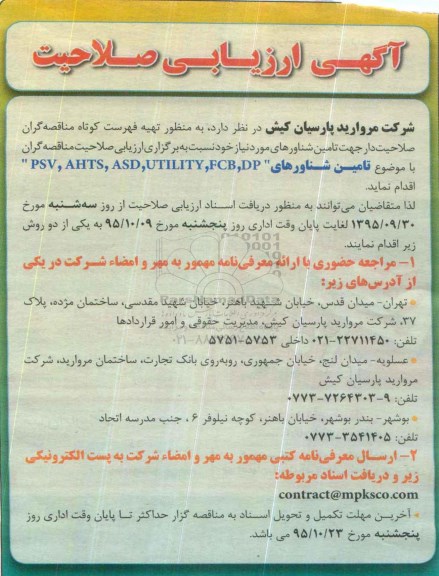 آگهی ارزیابی صلاحیت
شرکت مروارید پارسیان کیش در نظر دارد، به منظور تهیه فهرست کوتاه مناقصه‌گران
صلاحیت‌دار جهت تامین شناورهای مورد نیاز خود نسبت به برگزاری ارزیابی صلاحیت مناقصه‌گران
با موضوع تامین شناورهای" PSV, AHTS, ASD,UTILITY,FCB,DP "
اقدام نماید.
لذا متقاضیان می‌توانند به منظور دریافت اسناد ارزیابی صلاحیت از روز سه‌شنبه مورخ
۱۳۹۵/۰۹/۳۰ لغایت پایان وقت اداری روز پنجشنبه مورخ ۹۵/۱۰/۰۹ به یکی از دو روش
زیر اقدام نمایند.
۱- مراجعه حضوری با ارائه معرفی‌نامه ممهور به مهر و امضاء شرکت در یکی
از آدرس‌های زیر:
• تهران- میدان قدس، خیابان شهید باهنر، خیابان شهید مقدسی، ساختمان مژده، پلاک
۳۷، شرکت مروارید پارسیان کیش، مدیریت حقوقی و امور قراردادها
تلفن: ۲۲۷۱۱۴۵۰-۰۲۱ داخلی ۵۷۵۳-۵۷۵۱
• عسلویه- میدان لنج، خیابان جمهوری، روبه‌روی بانک تجارت، ساختمان مروارید، شرکت
مروارید پارسیان کیش
تلفن: ۹-۷۲۶۴۳۰۳-۰۷۷۳
• بوشهر- بندر بوشهر، خیابان باهنر، کوچه نیلوفر ۶ ، جنب مدرسه اتحاد
تلفن: ۳۵۴۱۴۰۵-۰۷۷۳
۲- ارسال معرفی‌نامه کتبی ممهور به مهر و امضاء شرکت به پست الکترونیکی
زیر و دریافت اسناد مربوطه:
contract@mpksco.com
• آخرین مهلت تکمیل و تحویل اسناد به مناقصه گزار حداکثر تا پایان وقت اداری روز
پنجشنبه مورخ ۹۵/۱۰/۲۳ می باشد.